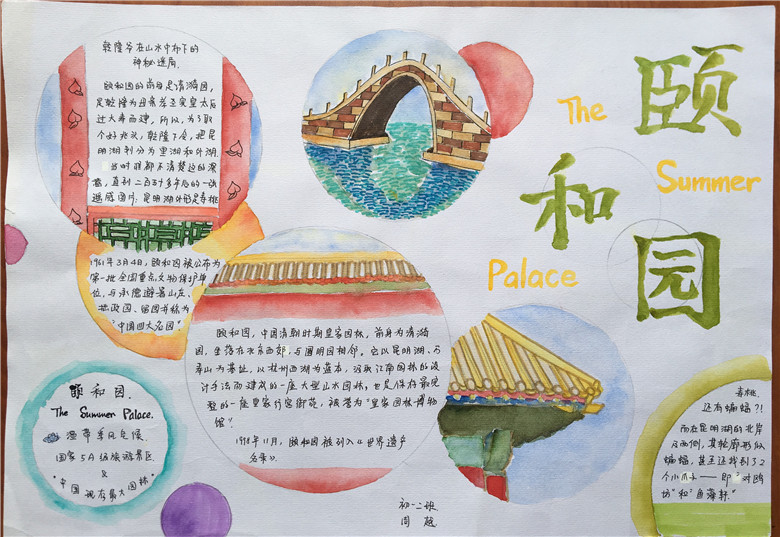 The
颐
和
园
Summer
Palace
乾隆爷在山水中布下的
神秘迷局
颐和园的前身是清漪园,
是乾隆为母亲孝圣宪皇太后
过大寿而建,所以,为了取
个好兆头,乾隆下令,把昆
明湖划分为里湖和外湖.
当时谁都不清楚这的深
意,直到二百五十多年后的一张
遥感图片:昆明湖外形是寿桃
1961年3月4日,颐和园被公布为
第一批全国重点文物保护单
位,与承德避暑山庄、
拙政园、留园并称为
"中国四大名园"
颐和园,中国清朝时期皇家园林,前身为清漪
园,坐落在北京西郊,与圆明园相邻。它以昆明湖、万
寿山为基址,以杭州西湖为蓝本,汲取江南园林的设
计手法而建成的一座大型山水园林,也是保存最完
整的一座皇家行宫御苑,被誉为"皇家园林博物
馆"
1998年11月,颐和园被列入《世界遗产
名录》.
颐和园.
The Summer Palace.
温带季风气候
国家5A级旅游景区
&
"中国现存最大园林"
寿桃.
还有蝙蝠?!
而在昆明湖的北岸
及西侧,其轮廓形似
蝙蝠,甚至还找到了2
个小爪——即"对鸥
坊"和"鱼藻轩."
初一二班
周